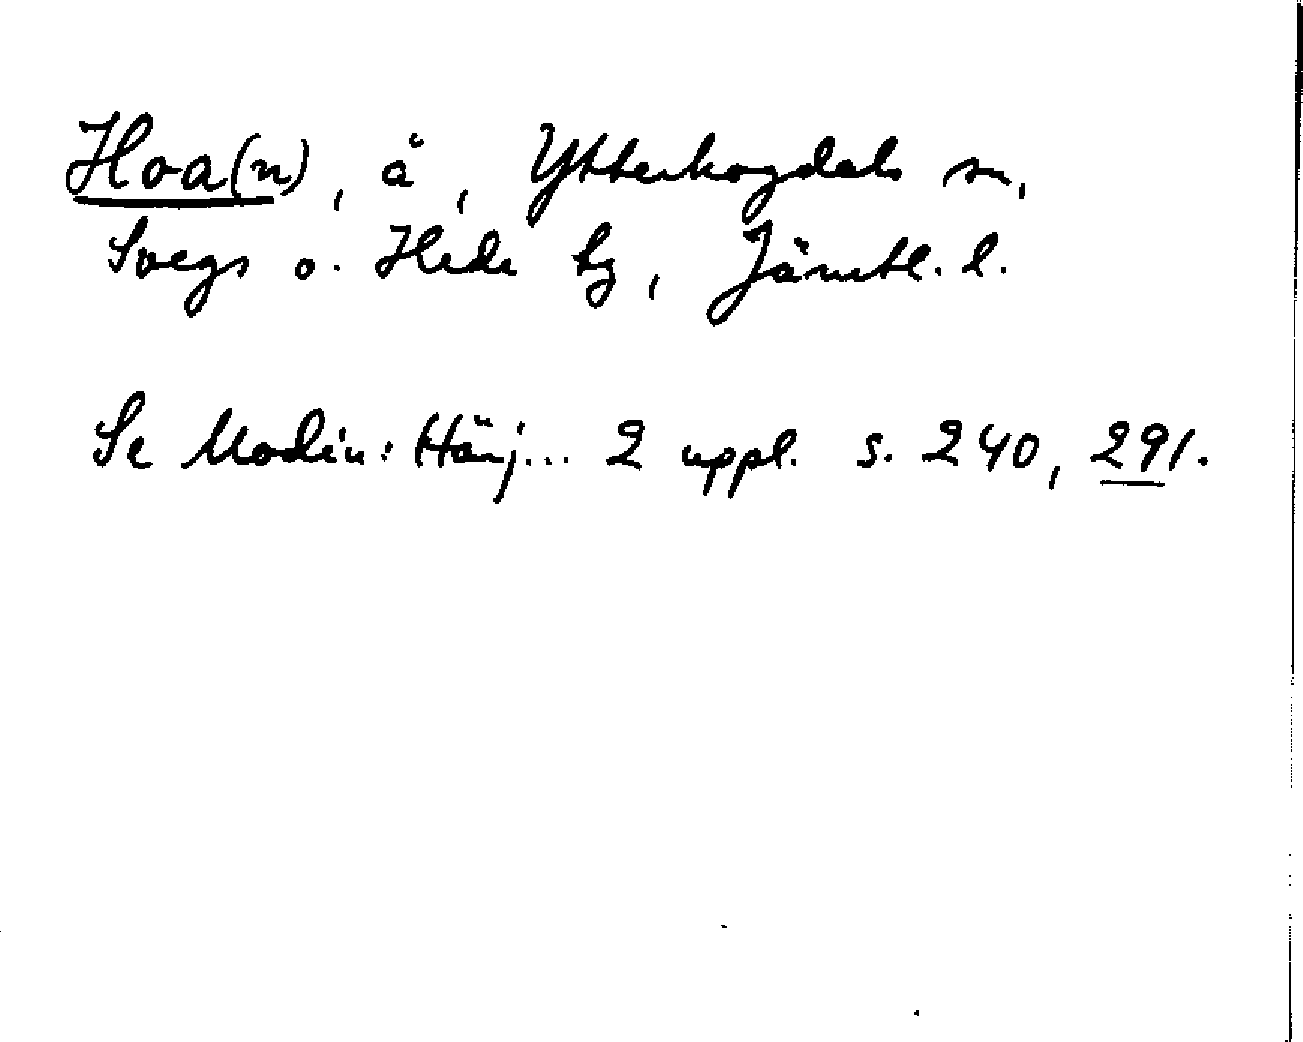 Hoa(n), å, Ytterhogdals sn,
Svegs o. Hede tg, Jämtl. l.
Se Modin: Härj... 2 uppl. s. 240, 291.